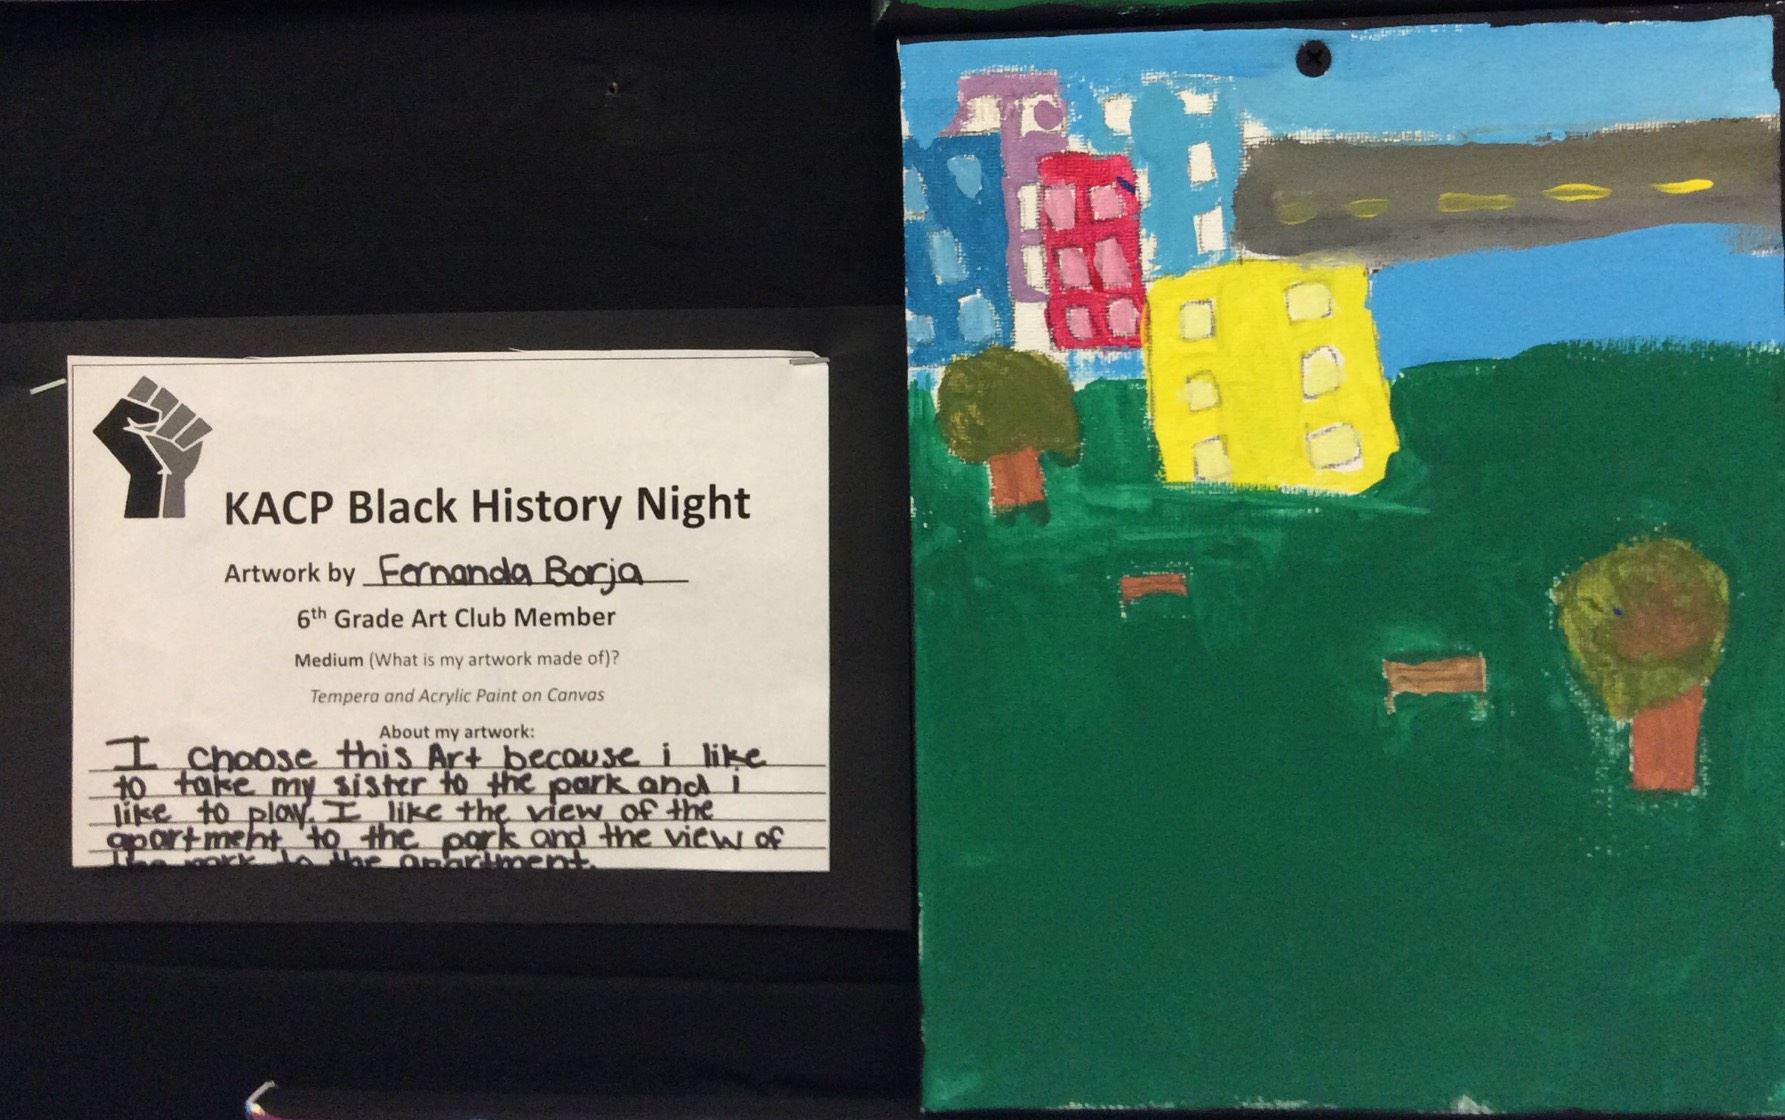 KACP Black History Night
Artwork by Fernanda Borja
6th Grade Art Club Member
Medium (What is my artwork made of)?
Tempera and Acrylic Paint on Canvas
About my artwork:
I choose this Art because i like
to take my sister to the park and i
like to play. I like the view of the
apartment to the park and the view of
the park to the apartment.